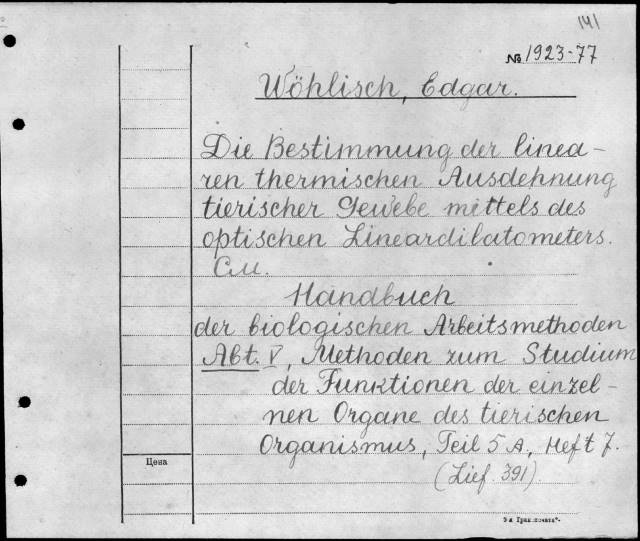 141
№ 1923-77
Wöhlisch, Edgar.
Die Bestimmung der linea-
ren thermischen Ausdehnung
tierischer Gewebe mittels des
optischen Lineardilatometers.
См.
Handbuch
der biologischen Arbeitsmethoden
Abt. V, Methoden zum Studium
der Funktionen der einzel-
nen Organe des tierischen
Organismus, Teil 5 A, Heft 7.
(Lief. 391).
Цена